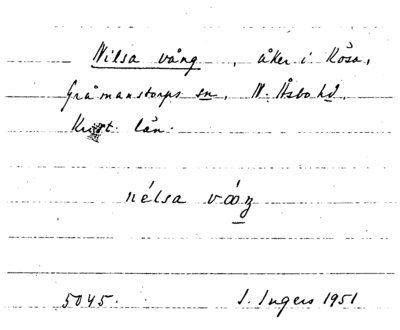 Nilsa vång, åker i Kåsa,
Gråmanstorps sn, N. Åsbo hd,
Krist. län.
nélsa vǻŋ
5045. I. Ingers 1951